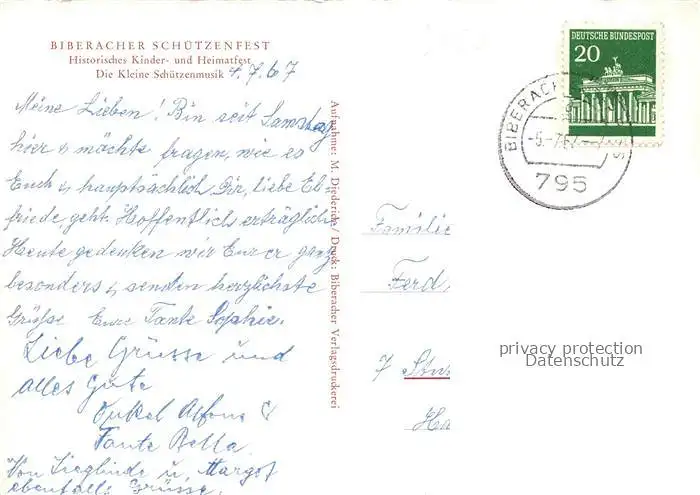 BIBERACHER SCHÜTZENFEST
Historisches Kinder- und Heimatfest
Die Kleine Schützenmusik 4.7.67
Meine Lieben! Bin seit Samstag
hier & möchte fragen, wie es
Euch & hauptsächlich Dir, liebe El-
friede geht. Hoffentlich erträglich
Heute gedenken wir Eurer ganz
besonders & senden herzlichste
Grüße Eure Tante Sophie.
Liebe Grüsse und
alles Gute
Onkel Alfons &
Tante Bella
Von Sieglinde u. Margot
ebenfalls Grüsse.
Aufnahme: M. Diederich / Druck: Biberacher Verlagsdruckerei
DEUTSCHE BUNDESPOST
20
BIBERACH
-5.-7.67
795
Familie
Ferd.
7
privacy protection
Datenschutz